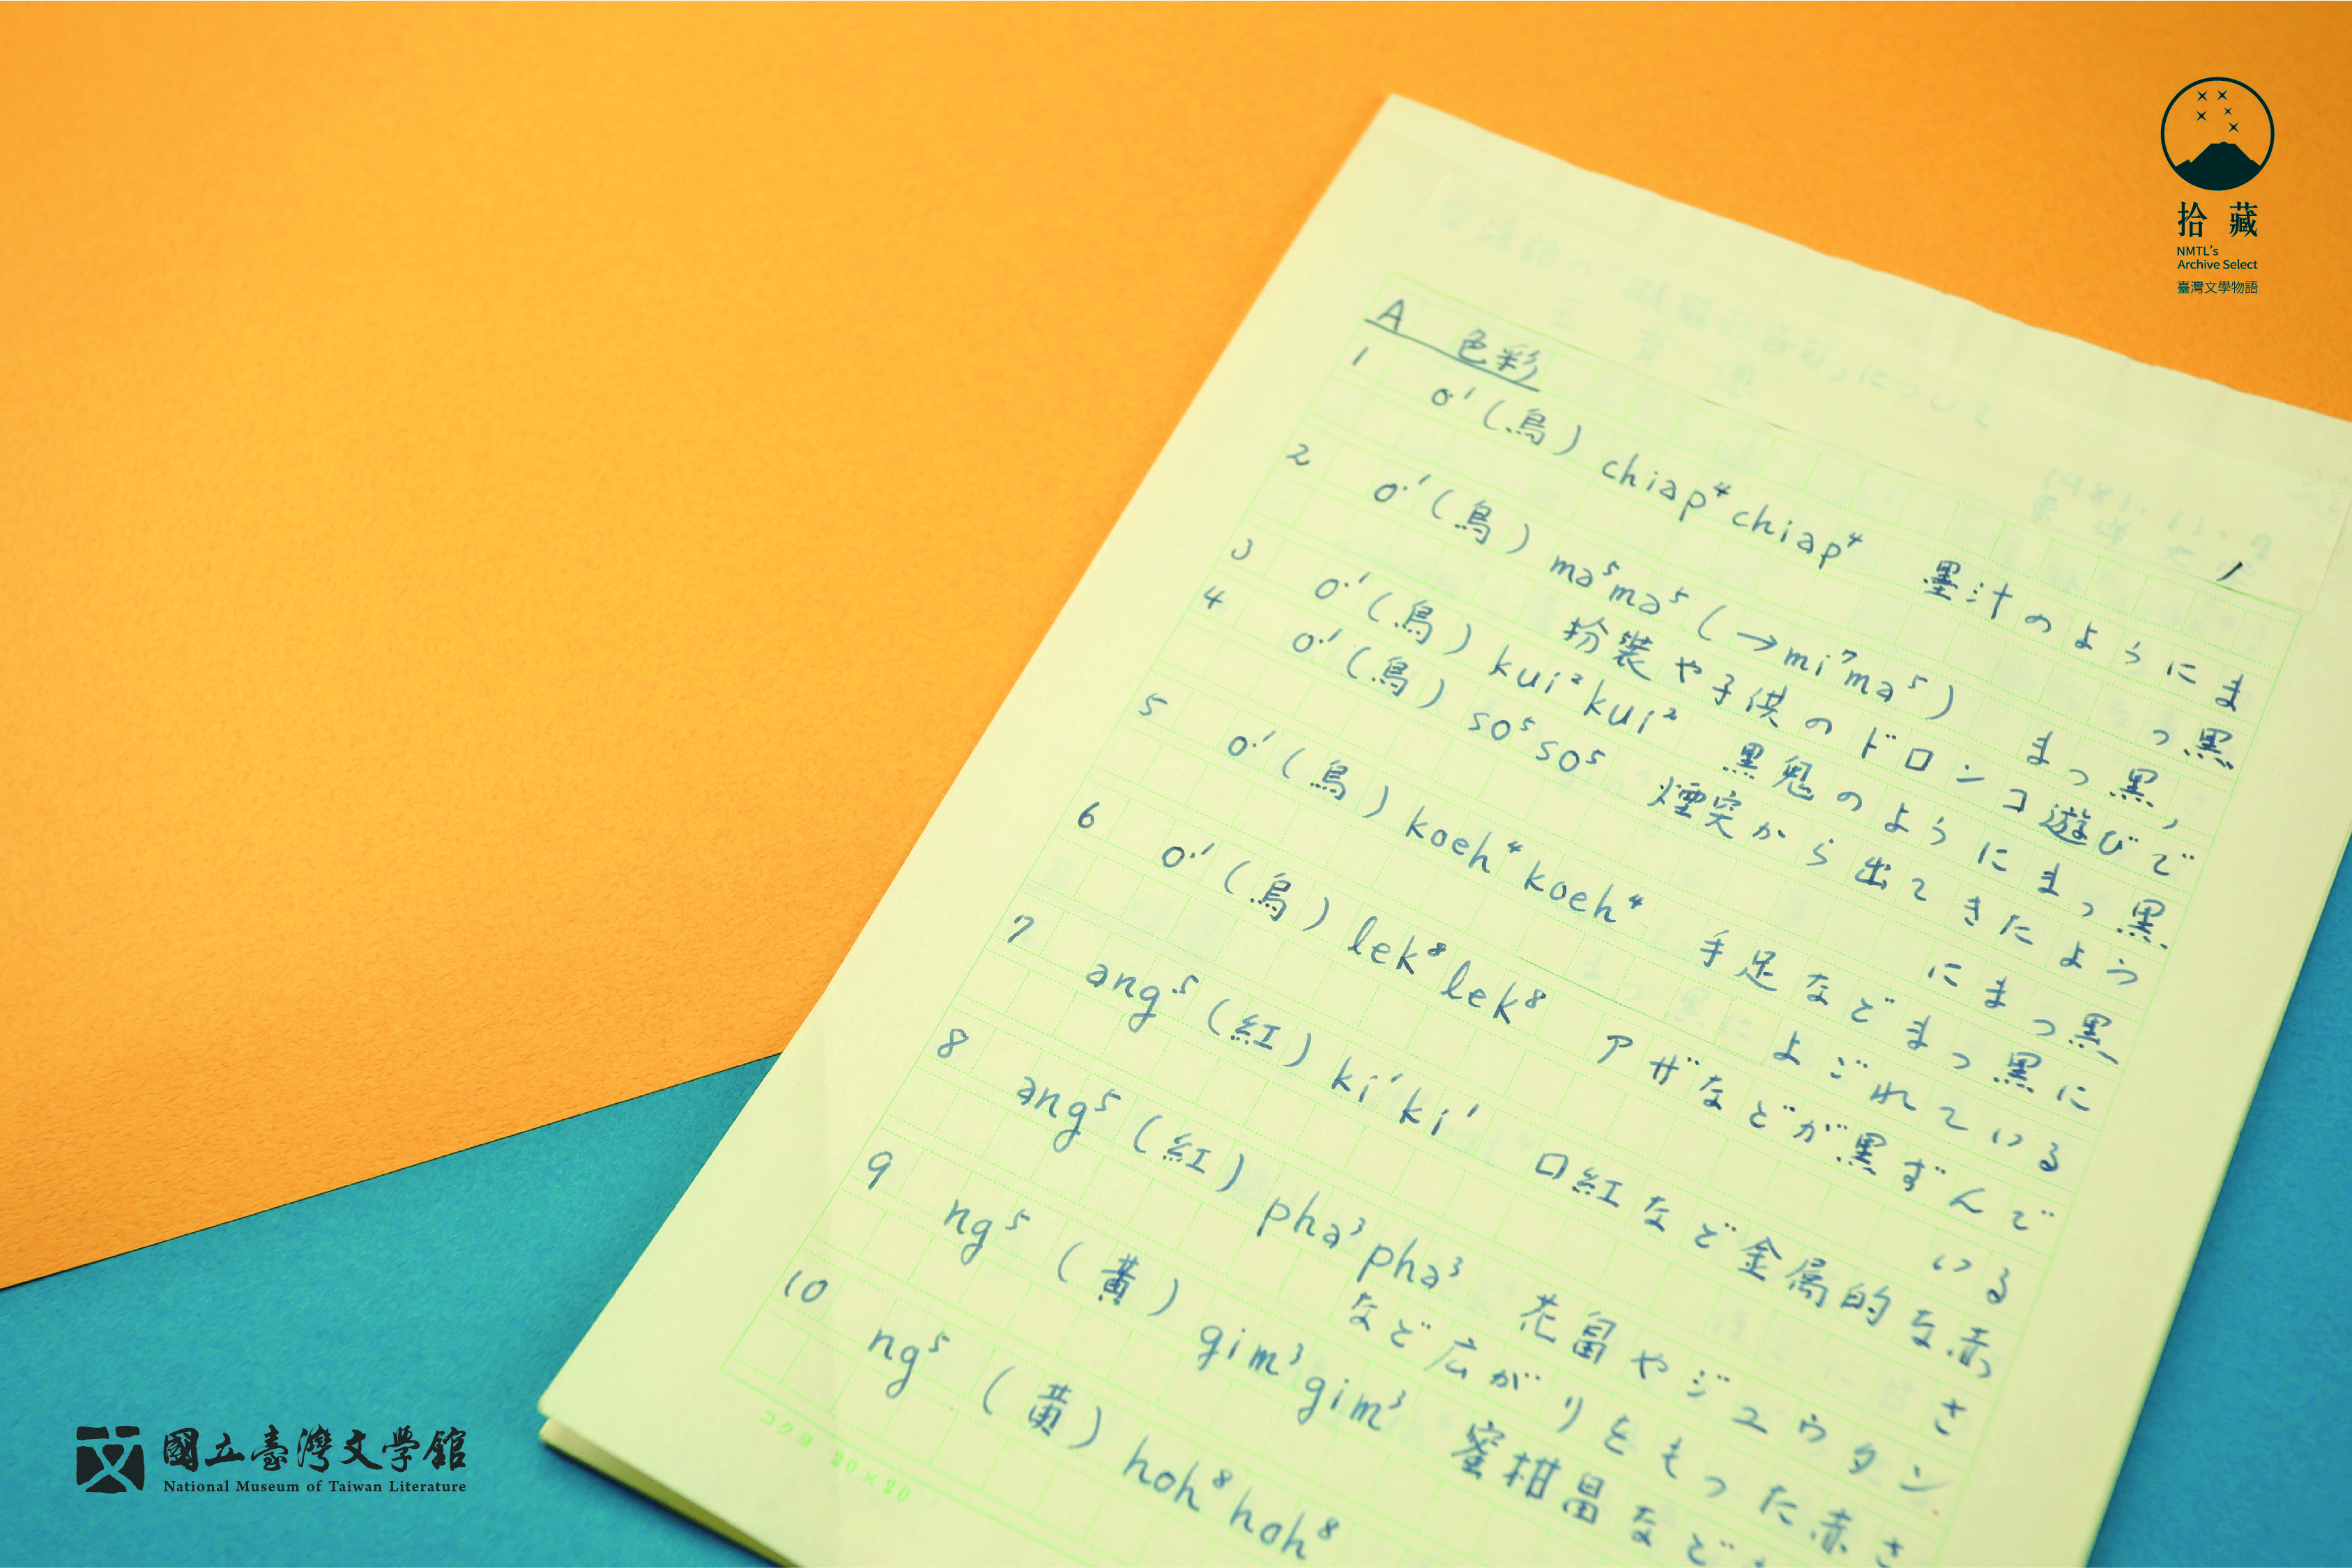 拾藏
NMTL's
Archive Select
臺灣文學物語
A 色彩
1
1 o·¹(烏) chiap⁴chiap⁴ 墨汁のようにまっ黒
2 o·¹(烏) ma⁵ma⁵(→mi⁷ma⁵) まっ黒,
扮装や子供のドロンコ遊びで
3 o·¹(烏) kui²kui² 黒鬼のようにまっ黒
4 o·¹(烏) so⁵so⁵ 煙突から出てきたよう
にまっ黒
5 o·¹(烏) koeh⁴koeh⁴ 手足などまっ黒に
よごれている
6 o·¹(烏) lek⁸lek⁸ アザなどが黒ずんで
いる
7 ang⁵(紅) ki¹ki¹ 口紅など金属的な赤
さ
8 ang⁵(紅) pha³pha³ 花畠やジュウタン
など広がりをもった赤さ
9 ng⁵(黃) gim³gim³ 蜜柑畠など
10 ng⁵(黃) hoh⁸hoh⁸
コクヨ 20×20
國立臺灣文學館
National Museum of Taiwan Literature